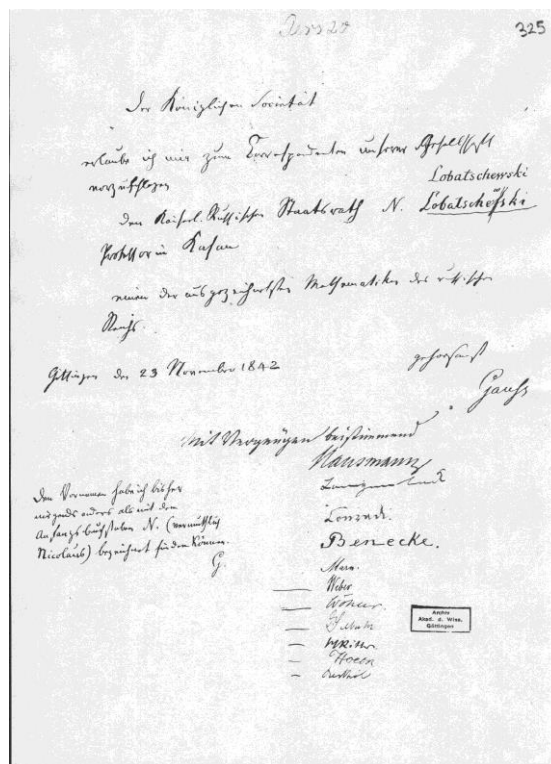 Pers 24
325
Der Königlichen Societät
erlaube ich mir zum Correspondenten unserer Gesellschaft
vorzuschlagen
Lobatschewski
den Kaiserl. Russischen Staatsrath N. Lobatschefski
Professor in Kasan
einen der ausgezeichnetsten Mathematiker des russischen
Reichs.
Göttingen den 23 November 1842
gehorsamst
Gauß
Mit Vergnügen beistimmend
Hausmann
Den Vornamen habe ich bisher
nirgends anders als mit dem
Anfangsbuchstaben N. (vermuthlich
Nicolaus) bezeichnet finden können.
G.
Conradi.
Benecke.
Marx.
Weber
Wöhler
Ritter
Hoeck
Archiv
Akad. d. Wiss.
Göttingen